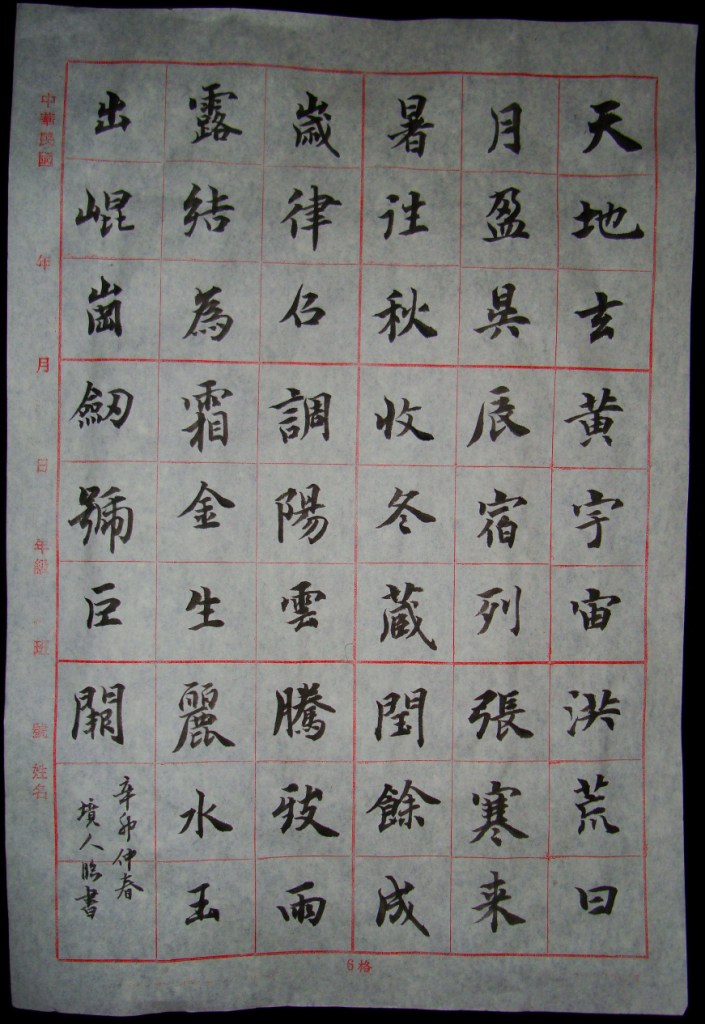 天地玄黄宇宙洪荒日
月盈昃辰宿列張寒来
暑往秋收冬蔵閏餘成
歳律吕調陽雲騰致雨
露結為霜金生麗水玉
出崐崗劔號巨闕
辛卯仲春
墳人臨書
中華民國 年 月 日 年級 班 號 姓名
6格